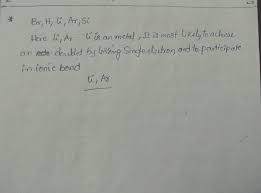 * Br, H, Li, Ar, Si
Here Li, Ar Li is an metal, It is most likely to achieve
an doublet by losing single electron, and to participate
in ionic bond
Li, Ar